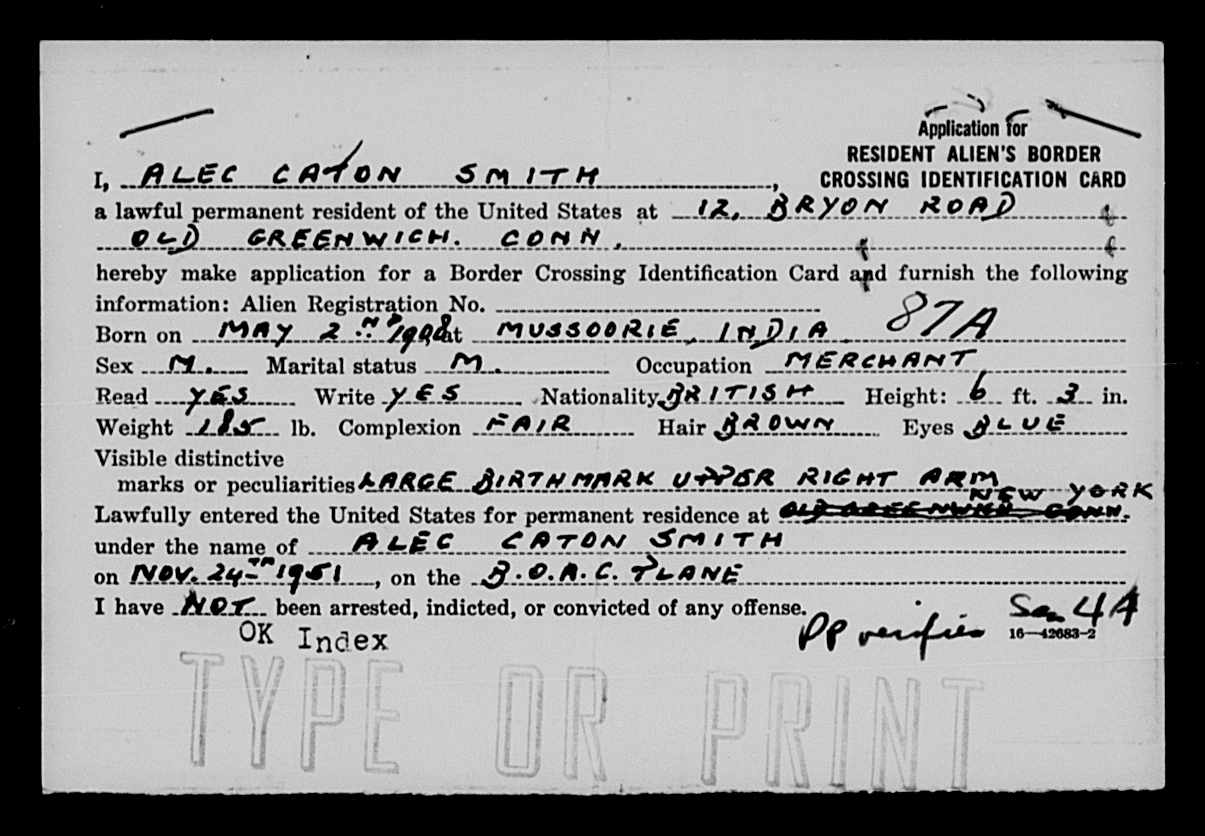 Application for
RESIDENT ALIEN'S BORDER
CROSSING IDENTIFICATION CARD
I, ALEC CATON SMITH,
a lawful permanent resident of the United States at 12, BRYON ROAD
OLD GREENWICH. CONN.
hereby make application for a Border Crossing Identification Card and furnish the following
information: Alien Registration No.
Born on MAY 2ND at MUSSOORIE, INDIA. 87A
Sex M. Marital status M. Occupation MERCHANT
Read YES Write YES Nationality BRITISH Height: 6 ft. 3 in.
Weight 185 lb. Complexion FAIR Hair BROWN Eyes BLUE
Visible distinctive
marks or peculiarities LARGE BIRTHMARK UPPER RIGHT ARM
NEW YORK
Lawfully entered the United States for permanent residence at OLD GREENWICH CONN.
under the name of ALEC CATON SMITH
on NOV. 24TH 1951, on the B.O.A.C. PLANE
I have NOT been arrested, indicted, or convicted of any offense.
OK Index PP verifies 4A
16—42683-2
TYPE OR PRINT